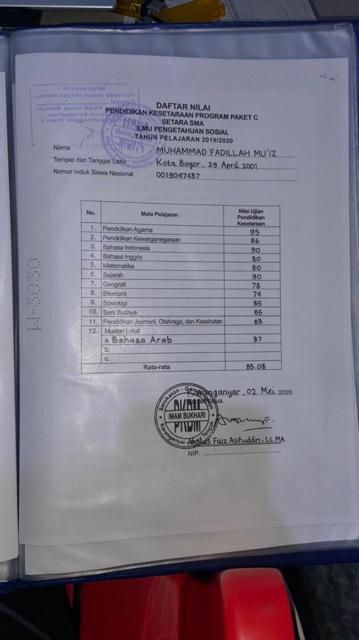 DAFTAR NILAI
PENDIDIKAN KESETARAAN PROGRAM PAKET C
SETARA SMA
ILMU PENGETAHUAN SOSIAL
TAHUN PELAJARAN 2019/2020
Nama : MUHAMMAD FADILLAH MU'IZ
Tempat dan Tanggal Lahir : Kota Bogor, 29 April 2001
Nomor Induk Siswa Nasional : 0019047487
No. Mata Pelajaran Nilai Ujian Pendidikan Kesetaraan
1. Pendidikan Agama 95
2. Pendidikan Kewarganegaraan 86
3. Bahasa Indonesia 90
4. Bahasa Inggris 80
5. Matematika 80
6. Sejarah 90
7. Geografi 78
8. Ekonomi 79
9. Sosiologi 85
10. Seni Budaya 85
11. Pendidikan Jasmani, Olahraga, dan Kesehatan 88
12. Muatan Lokal
a. Bahasa Arab 87
b.
c.
Rata-rata 85.08
Karanganyar, 02 Mei 2020
PKBM
IMAM BUKHARI
PKBM
Faiz Asifuddin, Lc.MA
NIP.